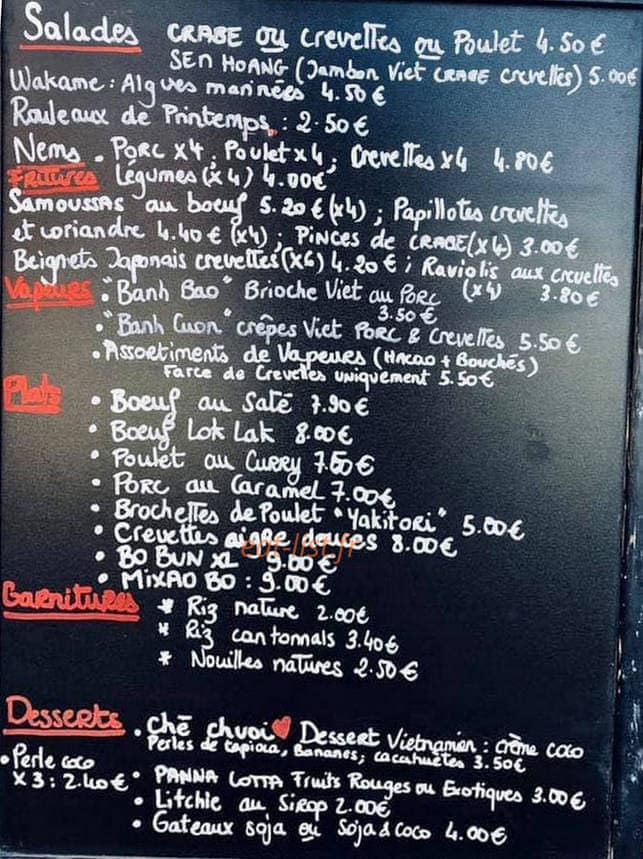 Salades CRABE ou crevettes ou Poulet 4.50€
SEN HOANG (Jambon Viet CRABE crevettes) 5.00€
Wakame : Algues marinées 4.50€
Rouleaux de Printemps : 2.50€
Nems . PORC x4 ; Poulet x4 ; Crevettes x4 4.80€
FRITURES Légumes (x4) 4.00€
SAMOUSSAS au boeuf 5.20€ (x4) ; Papillotes crevettes
et coriandre 4.40€ (x4) ; PINCES de CRABE (x4) 3.00€
Beignets Japonais crevettes (x6) 4.20€ ; Raviolis aux crevettes
(x4) 3.80€
Vapeurs • "Banh Bao" Brioche Viet au PORC
3.50€
• "Banh Cuon" crêpes Viet PORC & Crevettes 5.50€
• Assortiments de Vapeurs (HACAO + Bouchés)
Farce de Crevettes uniquement 5.50€
Plats
• Boeuf au Saté 7.90€
• Boeuf Lok Lak 8.00€
• Poulet au Curry 7.50€
• PORC au Caramel 7.00€
• Brochettes de Poulet "Yakitori" 5.00€
• Crevettes aigre douces 8.00€
eat-list.fr
• BO BUN XL 9.00€
• MIXAO BO : 9.00€
Garnitures
* Riz nature 2.00€
* Riz cantonnais 3.40€
* Nouilles natures 2.50€
Desserts
. Chē chuoi ♥ Dessert Vietnamien : crème coco
Perles de tapioca, Bananes, cacahuètes 3.50€
• Perle coco
x 3 : 2.40€
• PANNA COTTA Fruits Rouges ou Exotiques 3.00€
• Litchie au Sirop 2.00€
• Gateaux soja ou Soja & Coco 4.00€